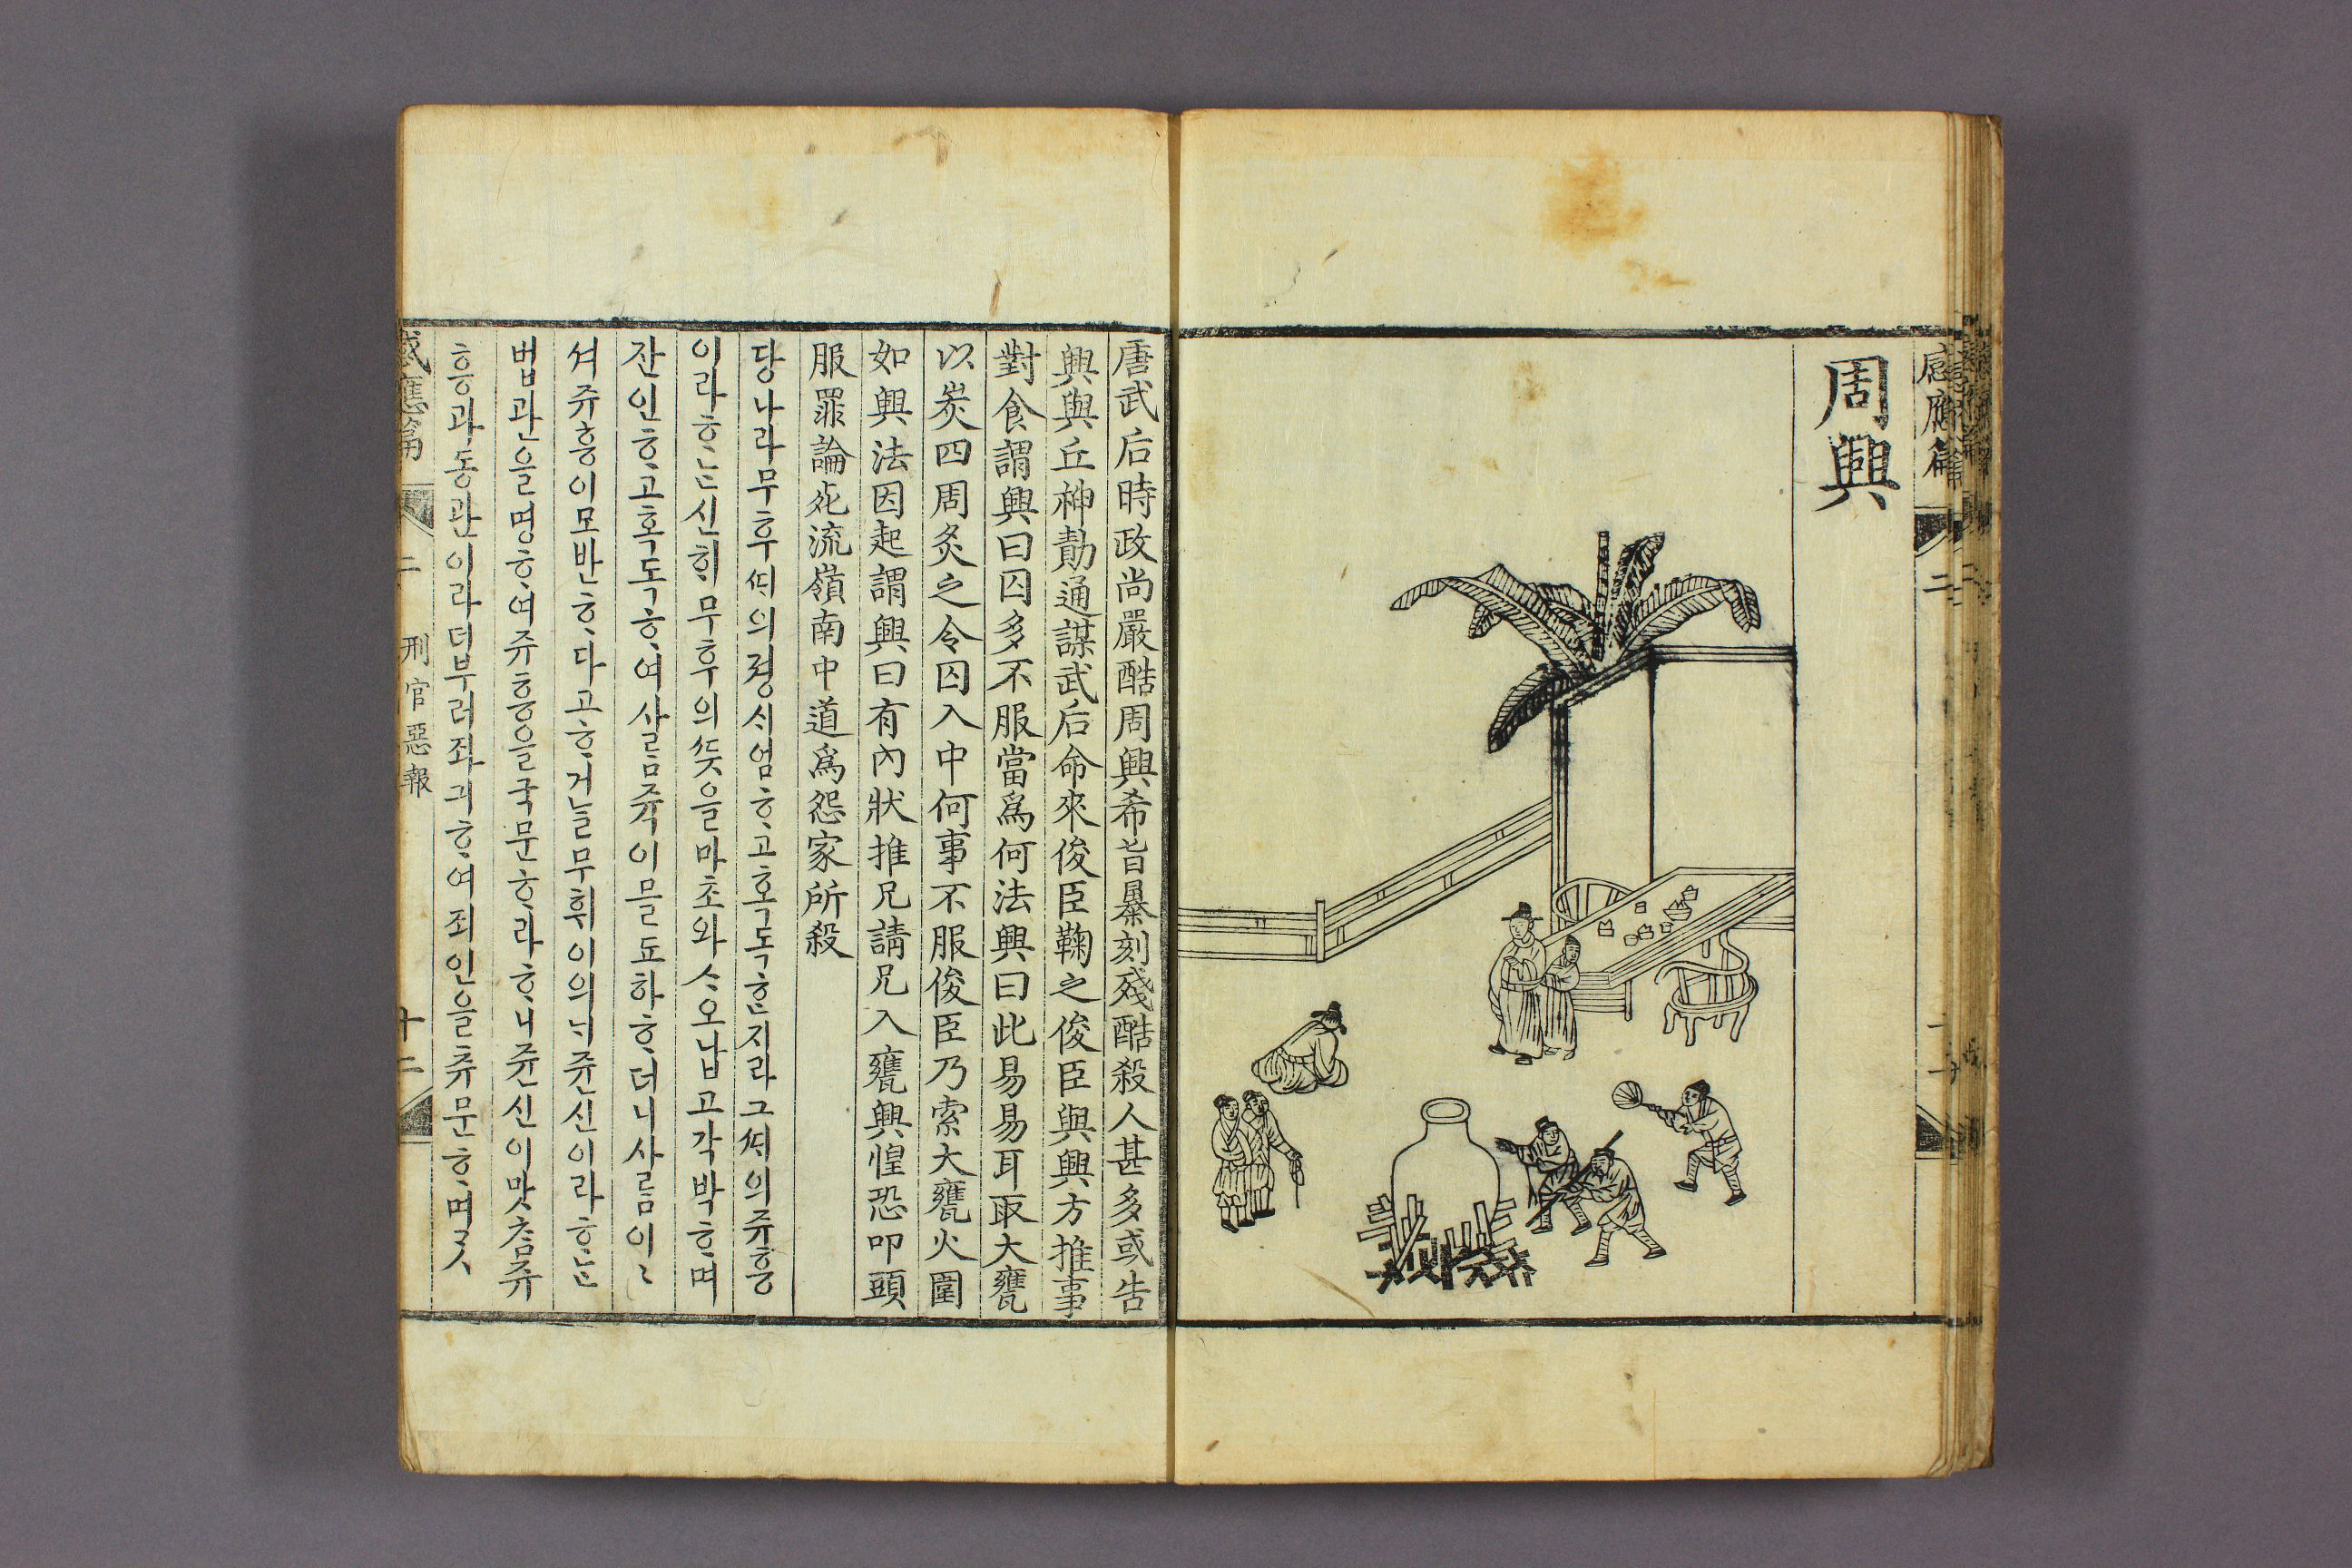 感應篇 二
周興
唐武后時政尚嚴酷周興希旨暴刻殘酷殺人甚多或告
興與丘神勣通謀武后命來俊臣鞠之俊臣與興方推事
對食謂興曰囚多不服當爲何法興曰此易易耳取大甕
以炭四周炙之令囚入中何事不服俊臣乃索大甕火圍
如興法因起謂興曰有內狀推兄請兄入甕興惶恐叩頭
服罪論死流嶺南中道爲怨家所殺
당나라무후ᄯᅢ의졍ᄉᆡ엄ᄒᆞ고혹독ᄒᆞᆫ지라그ᄯᅢ의쥬흥
이라ᄒᆞᄂᆞᆫ신해무후의ᄯᅳᆺ을마초와ᄉᆞ오납고각박ᄒᆞ며
잔인ᄒᆞ고혹독ᄒᆞ여사ᄅᆞᆷ쥭이믈됴하ᄒᆞ더니사ᄅᆞᆷ이〻
셔쥬흥이모반ᄒᆞ다고ᄒᆞ거ᄂᆞᆯ무휘이의ᄂᆡ쥰신이라ᄒᆞᄂᆞᆫ
법관을명ᄒᆞ여쥬흥을국문ᄒᆞ라ᄒᆞ니쥰신이맛ᄎᆞᆷ쥬
흥과동관이라더부러좌긔ᄒᆞ여죄인을츄문ᄒᆞ며
感應篇 二 刑官惡報 十二